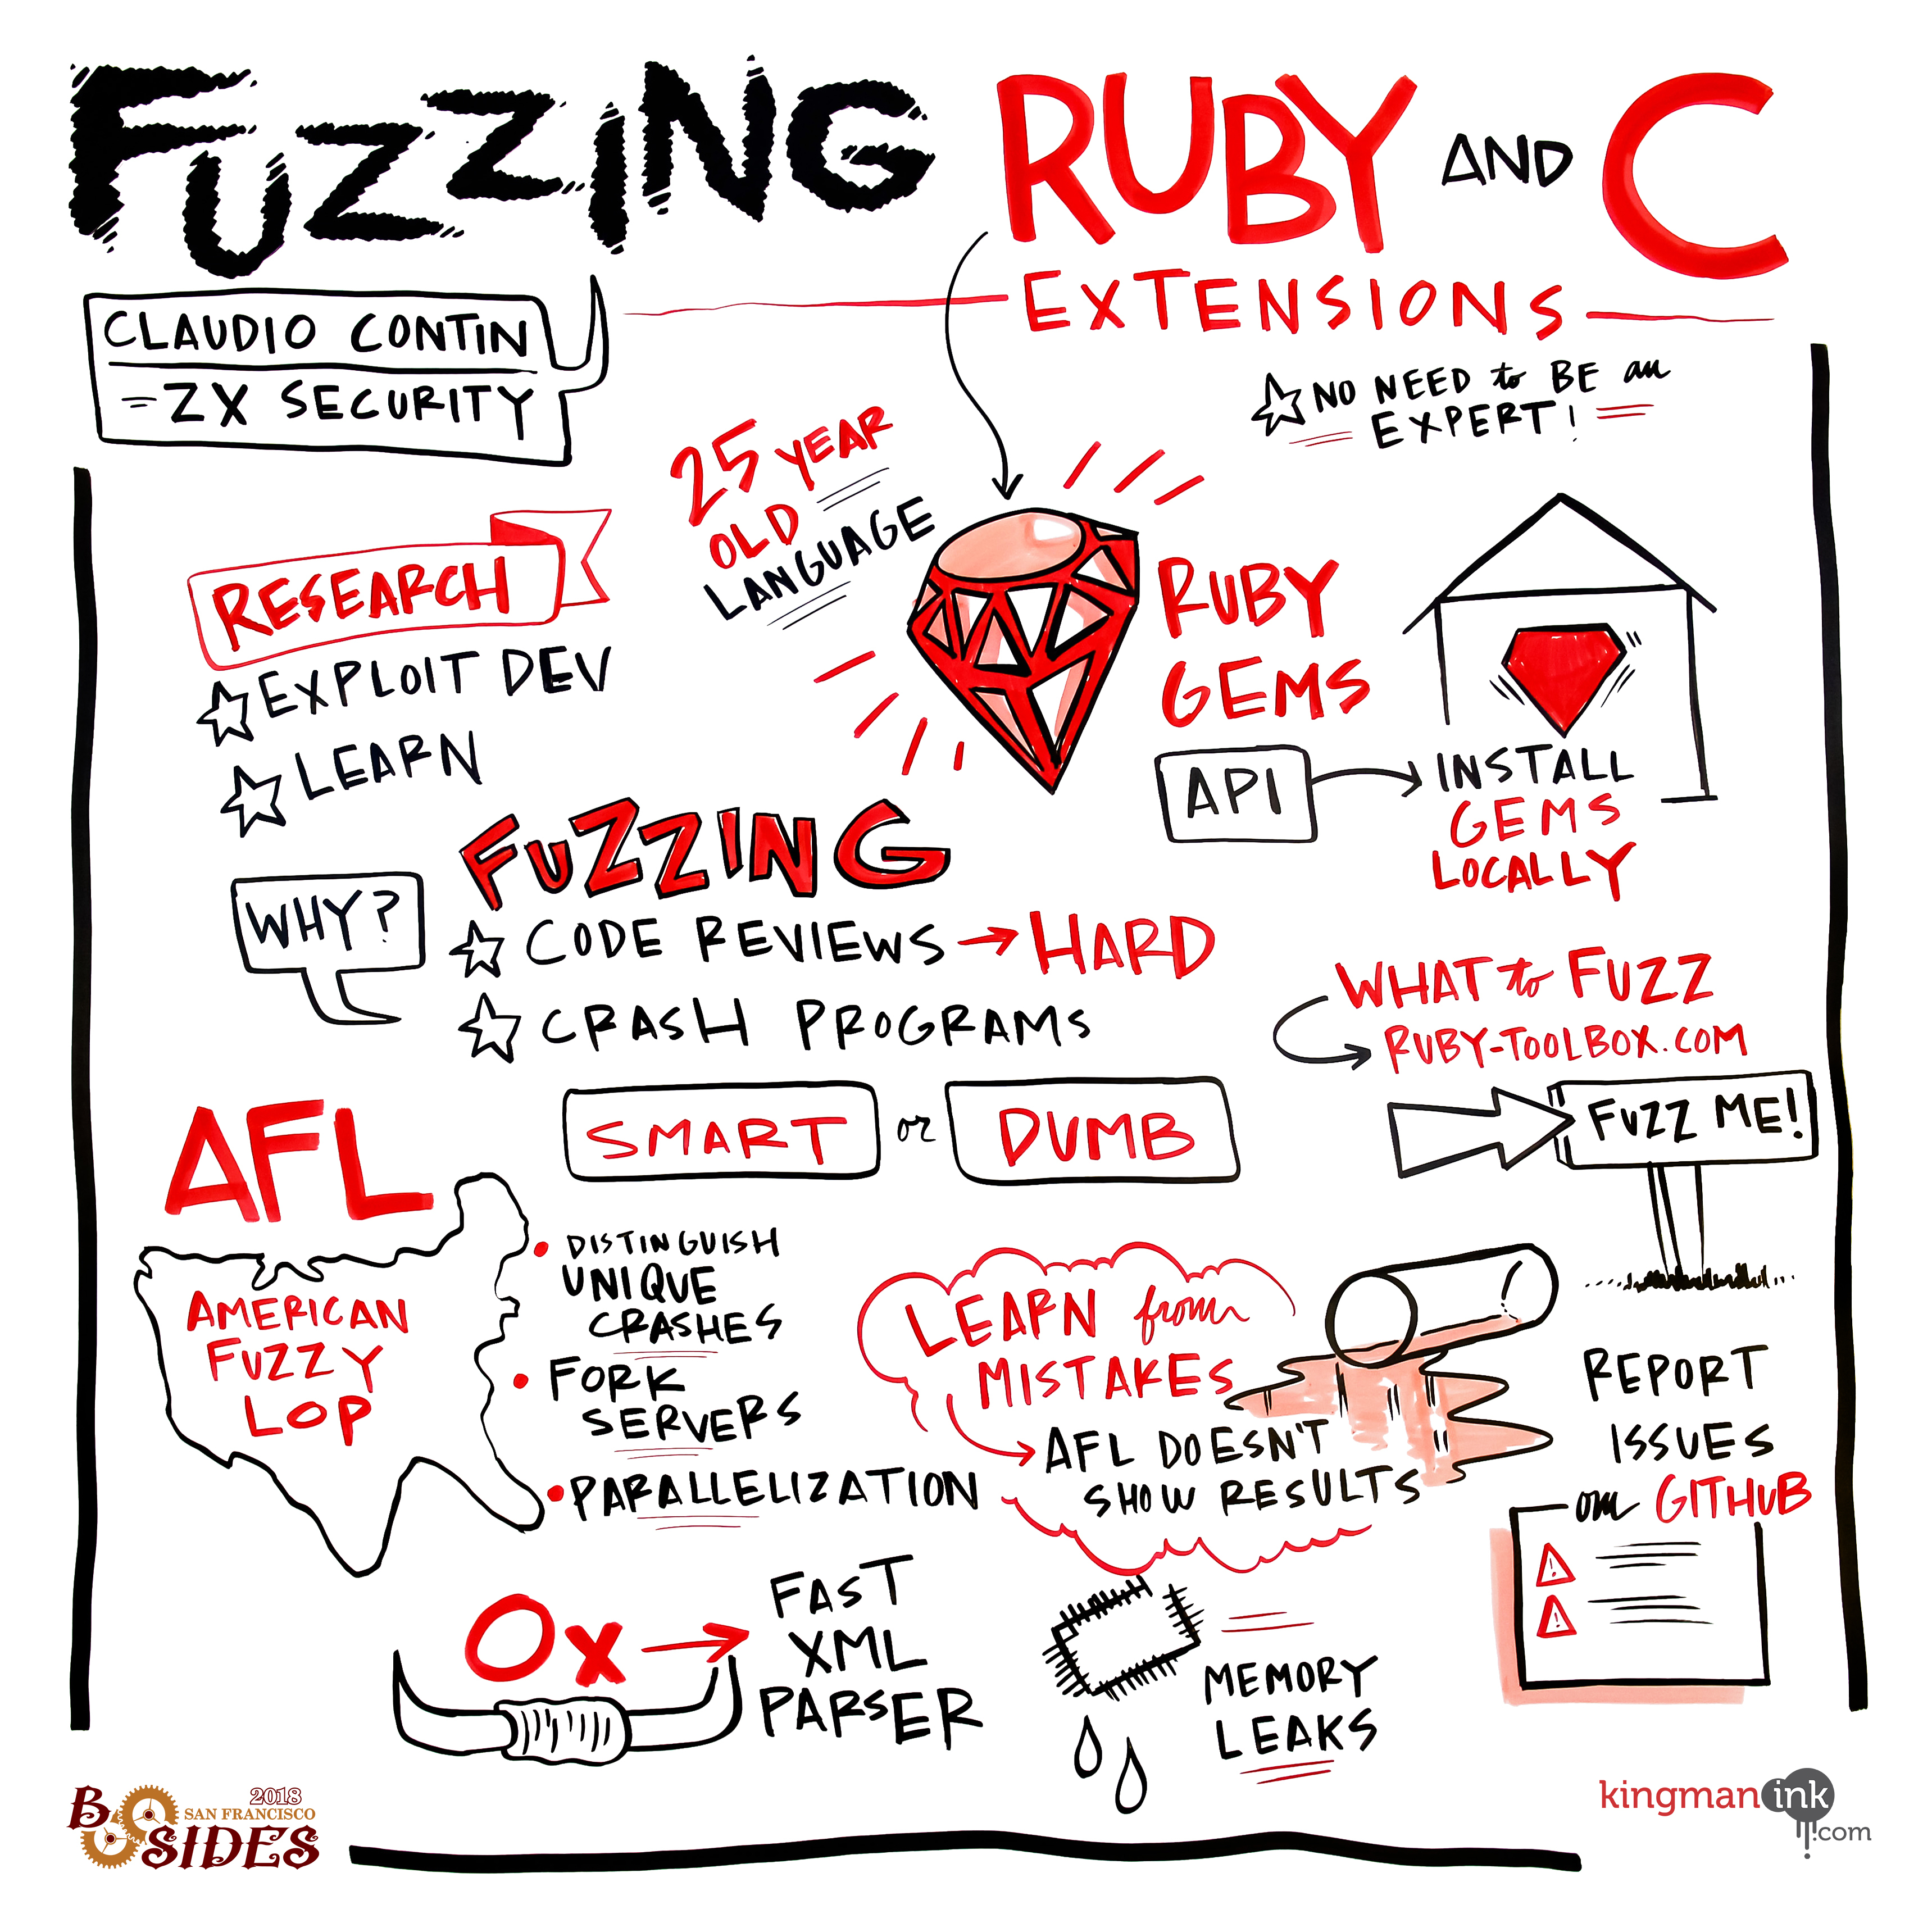 FUZZING RUBY AND C
EXTENSIONS
CLAUDIO CONTIN
- ZX SECURITY
NO NEED to BE an
EXPERT!
25 YEAR
OLD
LANGUAGE
RESEARCH
EXPLOIT DEV
LEARN
RUBY
GEMS
API
INSTALL
GEMS
LOCALLY
FUZZING
WHY?
CODE REVIEWS → HARD
CRASH PROGRAMS
WHAT to FUZZ
RUBY-TOOLBOX.COM
FUZZ ME!
SMART or DUMB
AFL
AMERICAN
FUZZY
LOP
DISTINGUISH
UNIQUE
CRASHES
FORK
SERVERS
PARALLELIZATION
LEARN from
MISTAKES
AFL DOESN'T
SHOW RESULTS
REPORT
ISSUES
on GITHUB
Ox →
FAST
XML
PARSER
MEMORY
LEAKS
2018
SAN FRANCISCO
B SIDES
kingmanink
.com